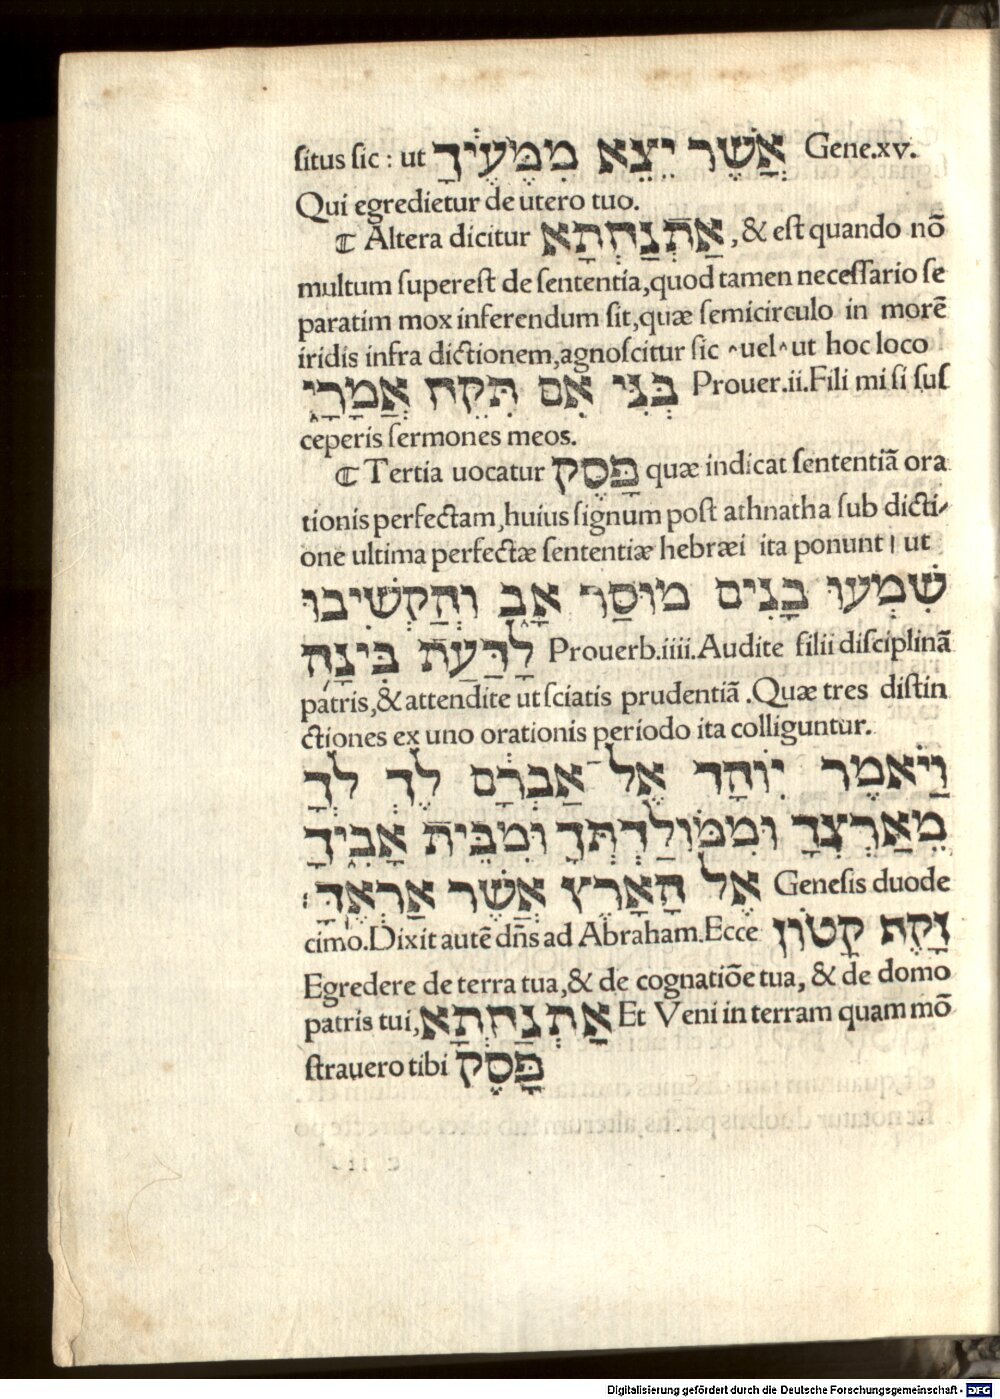 situs sic : ut אֲשֶׁר יֵצֵא מִמֵּעֶיךָ Gene.xv.
Qui egredietur de utero tuo.
¶ Altera dicitur אַתְנַחְתָּא, & est quando nō
multum superest de sententia,quod tamen necessario se
paratim mox inferendum sit,quæ semicirculo in morē
iridis infra dictionem,agnoscitur sic ^uel^ut hoc loco
בְּנִי אִם תִּקַּח אֲמָרָי Prouer.ii.Fili mi si sus
ceperis sermones meos.
¶ Tertia uocatur פָּסֶק quæ indicat sententiā ora
tionis perfectam,huius signum post athnatha sub dicti-
one ultima perfectæ sententiæ hebræi ita ponunt ׀ ut
שִׁמְעוּ בָנִים מוּסַר אָב וְהַקְשִׁיבוּ
לָדַעַת בִּינָה Prouerb.iiii.Audite filii disciplinā
patris,& attendite ut sciatis prudentiā .Quæ tres distin
ctiones ex uno orationis periodo ita colliguntur.
וַיֹּאמֶר יוֹהָד אֶל אַבְרָם לֶךְ לְךָ
מֵאַרְצְךָ וּמִמּוֹלַדְתְּךָ וּמִבֵּית אָבִיךָ
אֶל הָאָרֶץ אֲשֶׁר אַרְאֶךָּ׃ Genesis duode
cimo.Dixit autē dn̄s ad Abraham.Ecce זָקֵף קָטוֹן
Egredere de terra tua,& de cognatiōe tua, & de domo
patris tui,אַתְנַחְתָּא Et Veni in terram quam mō
strauero tibi פָּסֶק
Digitalisierung gefördert durch die Deutsche Forschungsgemeinschaft - DFG